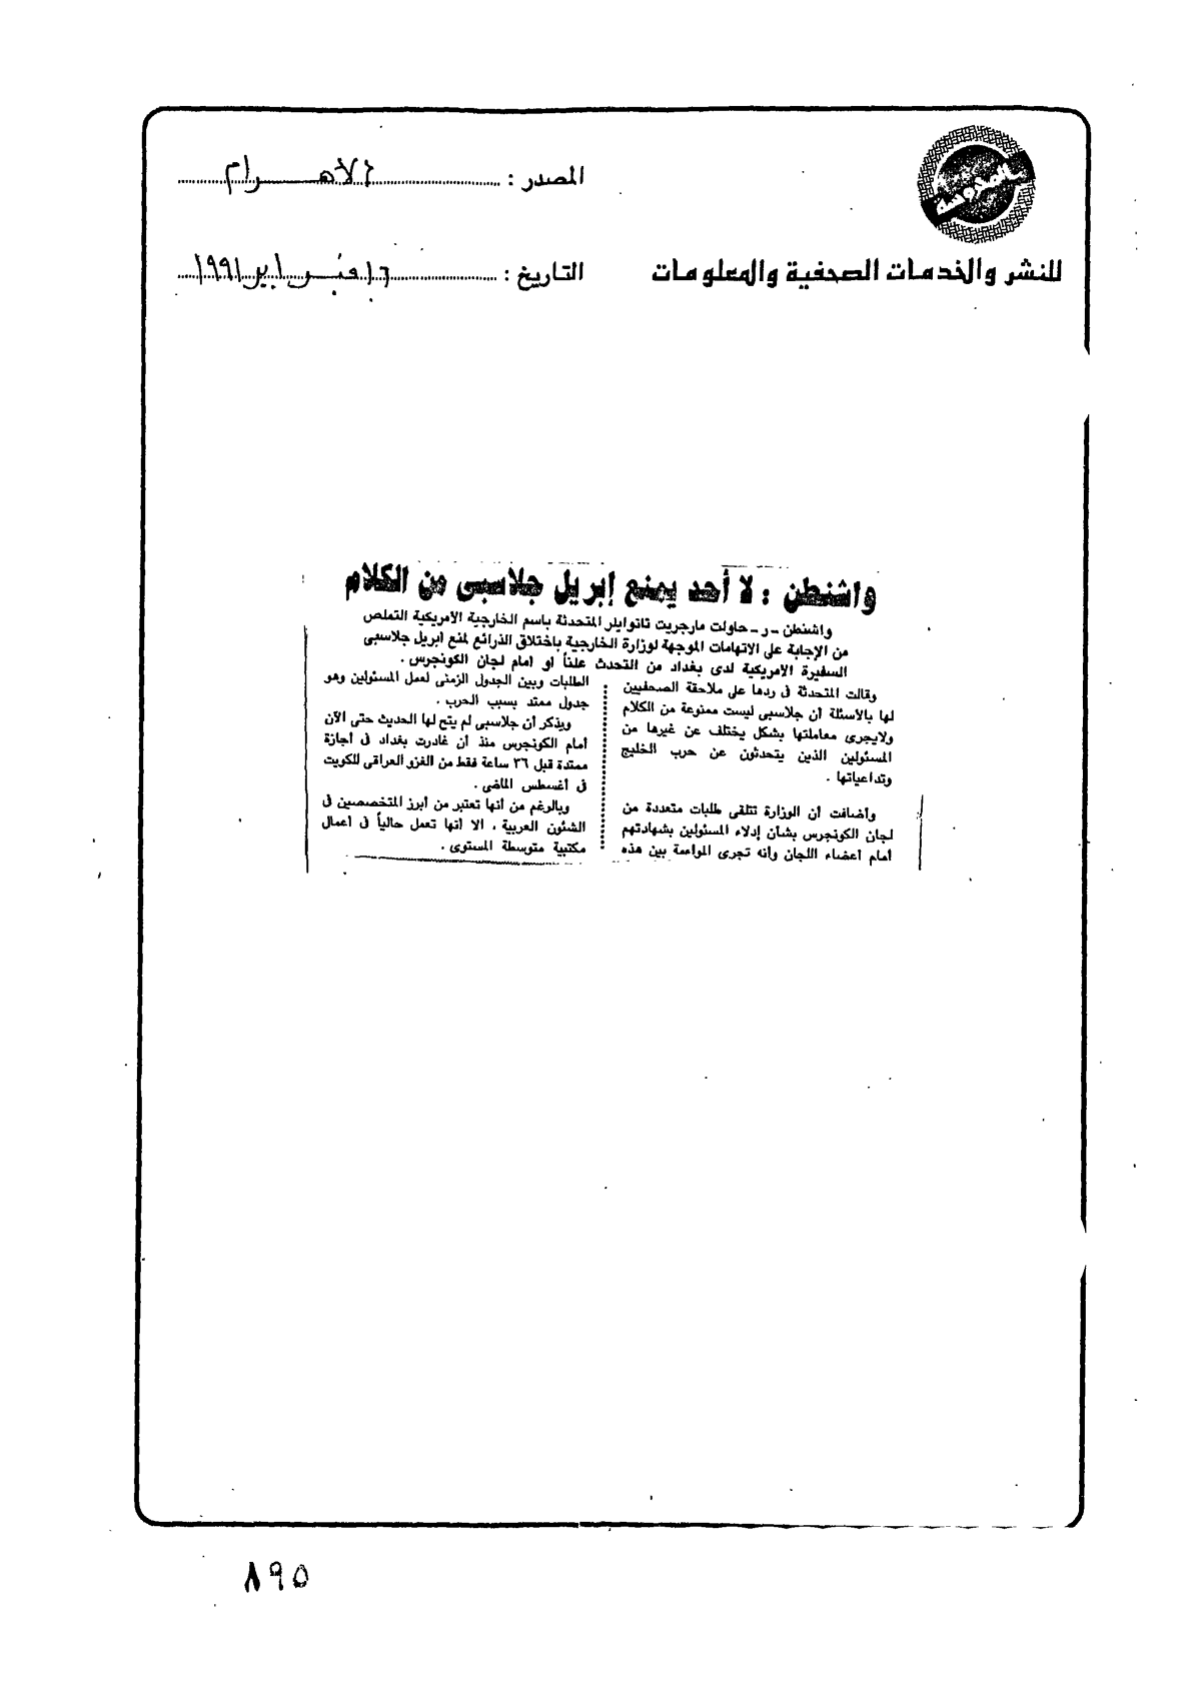 المصدر : الأهرام
للنشر والخدمات الصحفية والمعلومات
التاريخ : ١٦ فبراير ١٩٩١
واشنطن : لا أحد يمنع إبريل جلاسبى من الكلام
واشنطن - ر - حاولت مارجريت تاتوايلر المتحدثة باسم الخارجية الامريكية التملص
من الإجابة على الاتهامات الموجهة لوزارة الخارجية باختلاق الذرائع لمنع ابريل جلاسبى
السفيرة الامريكية لدى بغداد من التحدث علناً او امام لجان الكونجرس .
وقالت المتحدثة فى ردها على ملاحقة الصحفيين
لها بالأسئلة أن جلاسبى ليست ممنوعة من الكلام
ولايجرى معاملتها بشكل يختلف عن غيرها من
المسئولين الذين يتحدثون عن حرب الخليج
وتداعياتها .
وأضافت أن الوزارة تتلقى طلبات متعددة من
لجان الكونجرس بشأن إدلاء المسئولين بشهادتهم
أمام اعضاء اللجان وانه تجرى المواءمة بين هذه
الطلبات وبين الجدول الزمنى لعمل المسئولين وهو
جدول ممتد بسبب الحرب .
ويذكر أن جلاسبى لم يتح لها الحديث حتى الآن
أمام الكونجرس منذ أن غادرت بغداد فى أجازة
ممتدة قبل ٣٦ ساعة فقط من الغزو العراقى للكويت
فى أغسطس الماضى .
وبالرغم من أنها تعتبر من أبرز المتخصصين فى
الشئون العربية ، الا أنها تعمل حالياً فى اعمال
مكتبية متوسطة المستوى .
٨٩٥